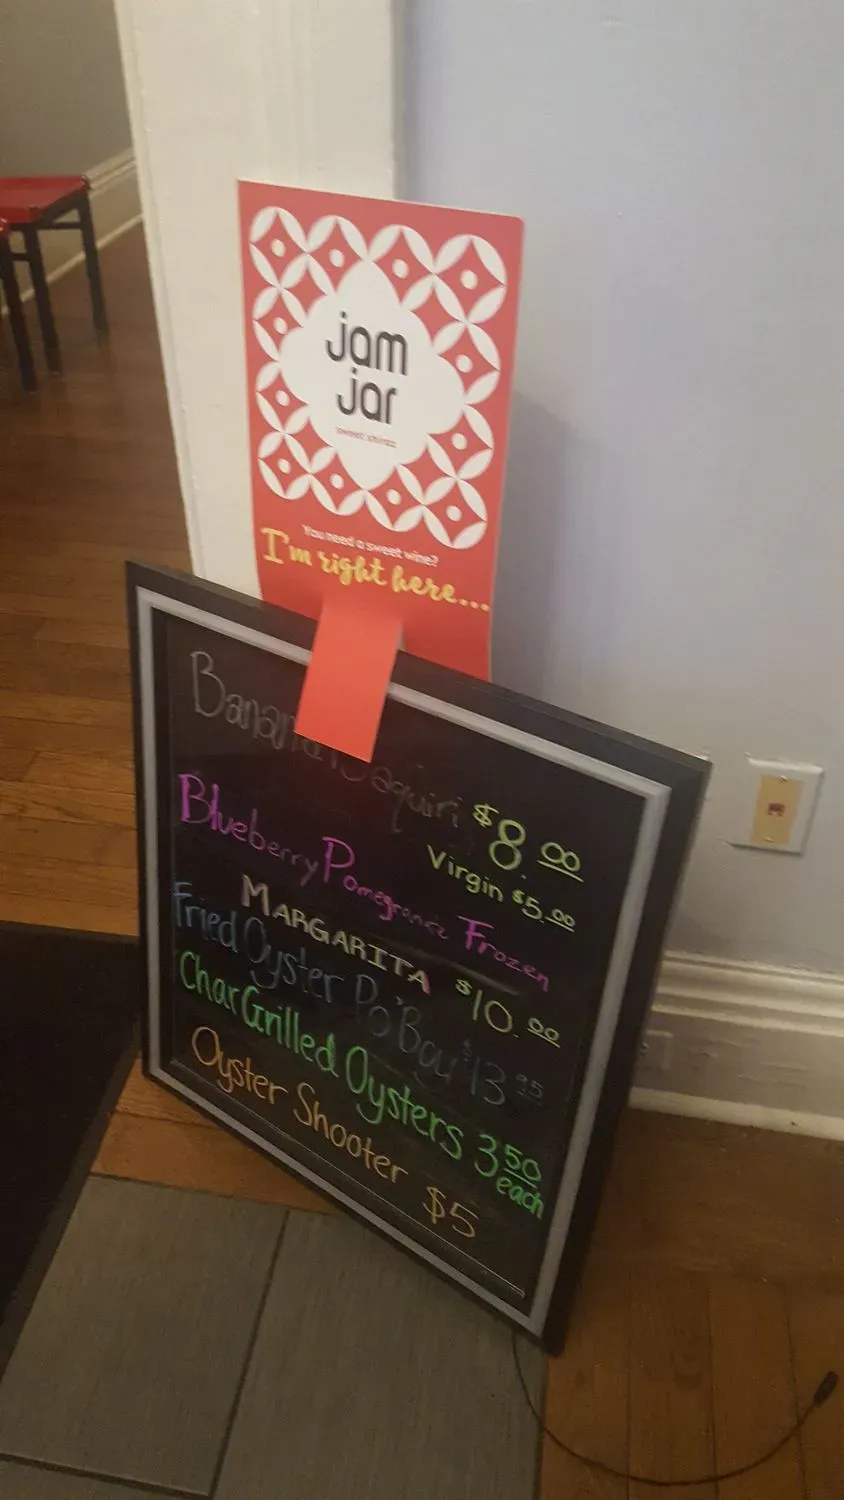 jam
jar
sweet shiraz
You need a sweet wine?
I'm right here...
Banana Daquiri $8.00
Virgin $5.00
Blueberry Pomegranate Frozen
MARGARITA $10.00
Fried Oyster Po'Boy $13.95
Char Grilled Oysters 3.50 each
Oyster Shooter $5